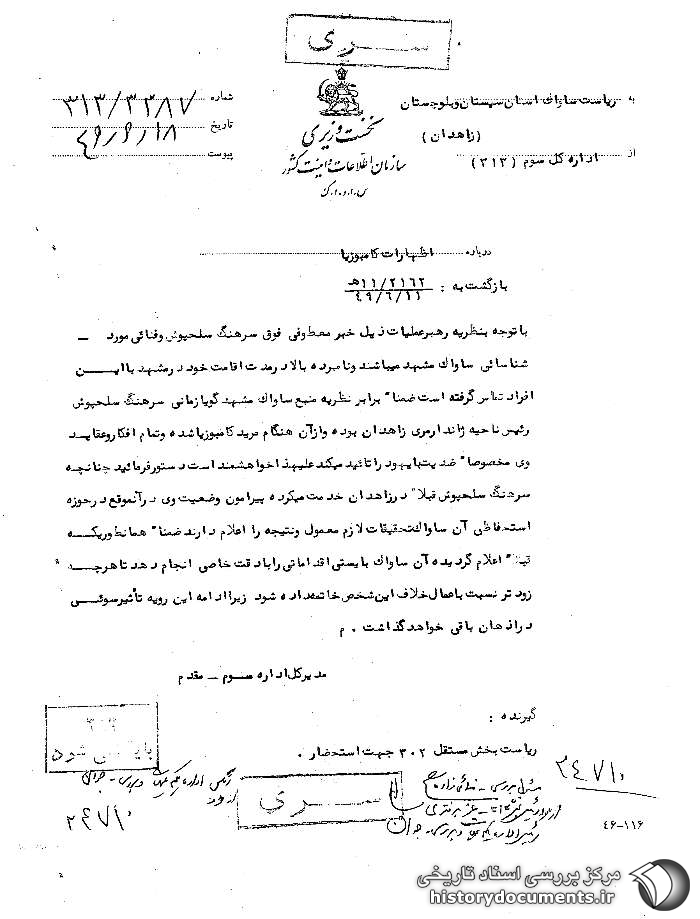 ســـری
به ریاست ساواک استان سیستان و بلوچستان
(زاهدان)
از اداره کل سوم (۳۱۲)
نخست وزیری
سازمان اطلاعات و امنیت کشور
س.ا.و.ا.ک
شماره ۳۱۲/۳۲۸۷
تاریخ ۴۹/۶/۱۸
پیوست
درباره اظهارات کامبوزیا
بازگشت به : ۱۱/۲۱۶۲هـ
۴۹/۶/۱۱
با توجه بنظریه رهبر عملیات ذیل خبر معطوفی فوق سرهنگ سلحپوش وفنائی مورد ــ
شناسائی ساواک مشهد میباشند ونامبرده بالا در مدت اقامت خود در مشهد با ایــن
افراد تماس گرفته است ضمنا" برابر نظریه منبع ساواک مشهد گویا زمانی سرهنگ سلحپوش
رئیس ناحیه ژاندارمری زاهدان بوده و از آن هنگام مرید کامبوزیا شده وتمام افکار وعقایــد
وی مخصوصا" ضدیت بایهود را تائید میکند علیهذا خواهشمند است دستور فرمائید چنانچه
سرهنگ سلحپوش قبلا" در زاهدان خدمت میکرده پیرامون وضعیت وی در آنموقع در حوزه
استحفاظی آن ساواک تحقیقات لازم معمول ونتیجه را اعلام دارند ضمنا" همانطوریکــه
قبلا" اعلام گردیده آن ساواک بایستی اقداماتی را با دقت خاصی انجام دهد تا هرچــه
زودتر نسبت باعمال خلاف این شخص خاتمه داده شود زیرا ادامه این رویه تأثیر سوئــی
در اذهان باقی خواهد گذاشت . م
مدیرکل اداره سوم ــ مقدم
گیرنده :
ریاست بخش مستقل ۳۰۲ جهت استحضار .
۳۰۲
بایگانی شود
ســـری
۲۴۷۱۰
۲۴۷۱۰
۴۶-۱۱۶
مرکز بررسی اسناد تاریخی
historydocuments.ir